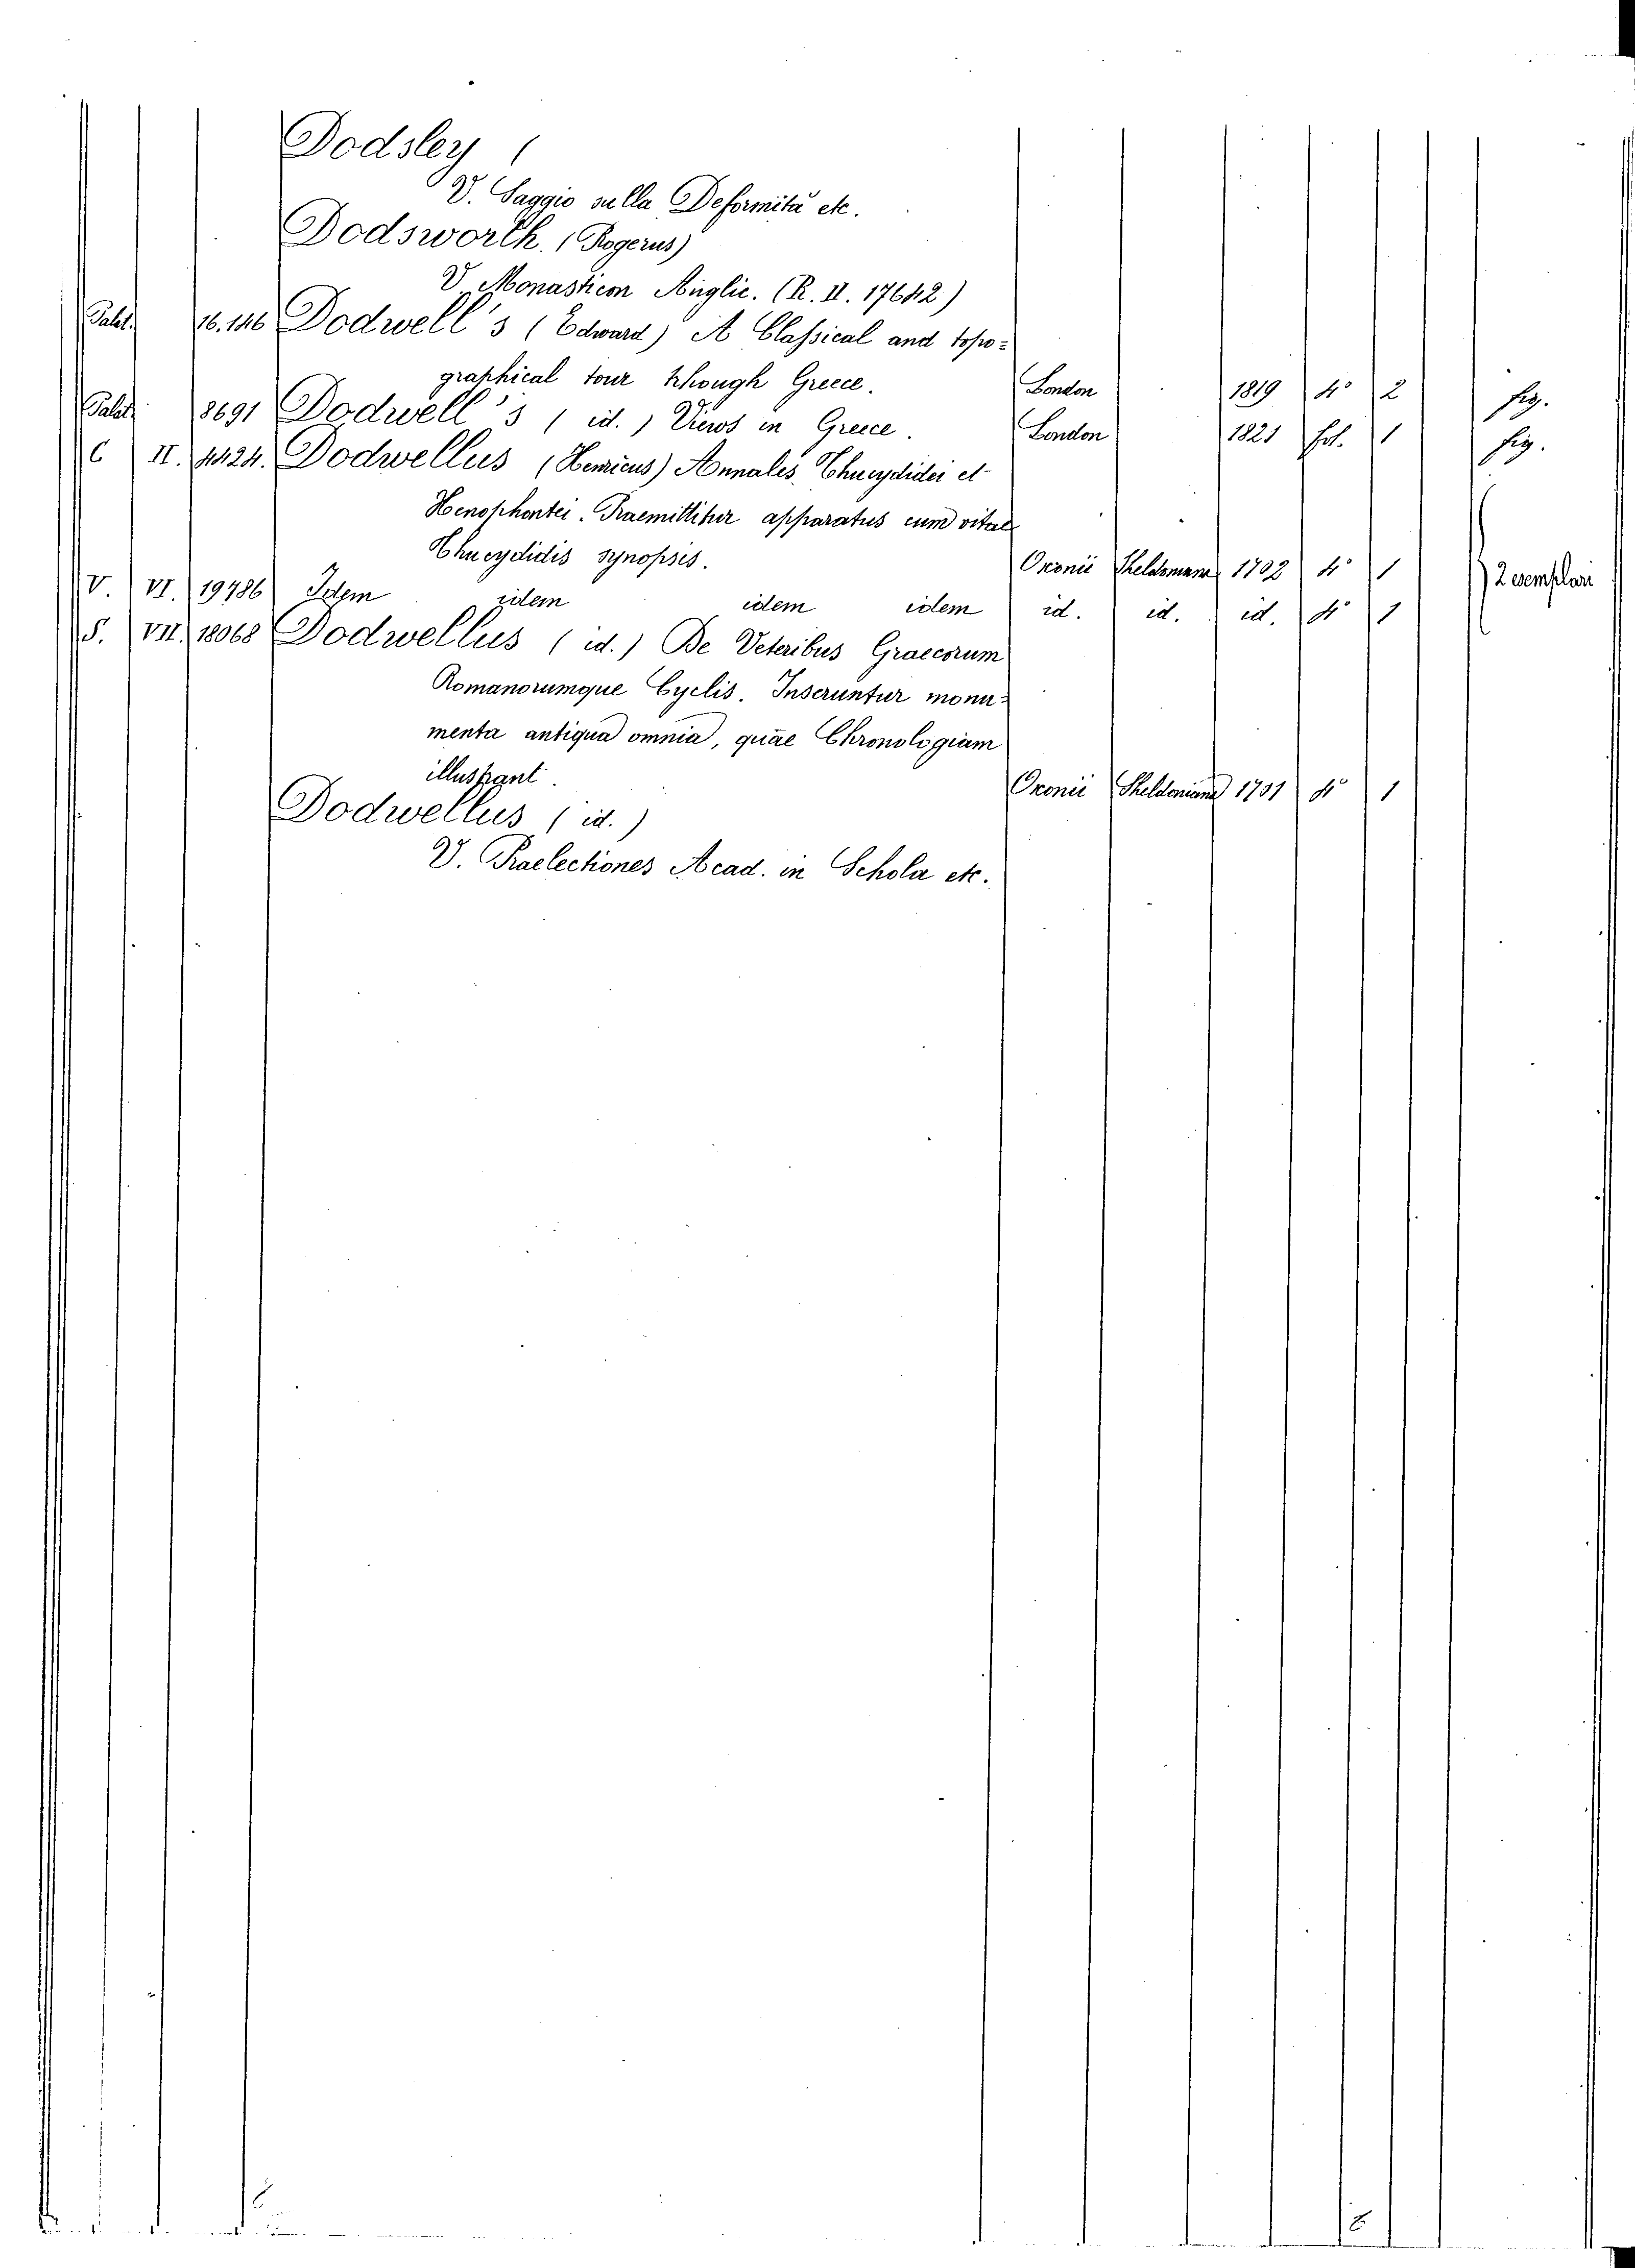 Dodsley (
V. Saggio sulla Deformità etc.
Dodsworth. (Rogerus)
V. Monasticon Anglic. (R. II. 17642)
Palat. 16.146 Dodwell's (Edward) A Classical and topo=
graphical tour though Greece. London 1819 4° 2 fig.
Palat. 8691 Dodwell's (id.) Views in Greece. London 1821 fol. 1 fig.
C II. 4424. Dodwellus (Henricus) Annales Thucydidei et
Henophontei. Praemittitur apparatus cum vitae
Thucydidis synopsis. Oxonii Sheldoniana 1702 4° 1
2 esemplari
V. VI. 19486 Idem idem idem idem id. id. id. 4° 1
S. VII. 18068 Dodwellus (id.) De Veteribus Graecorum
Romanorumque Cyclis. Inseruntur monu=
menta antiqua omnia, quae Chronologiam
illustrant. Oxonii Sheldoniana 1701 4° 1
Dodwellus (id.)
V. Praelectiones Acad. in Schola etc.